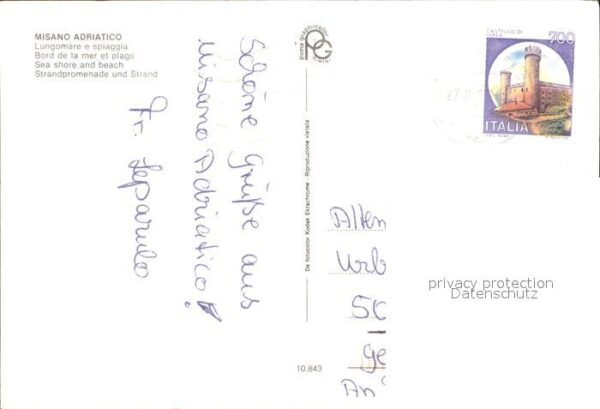 MISANO ADRIATICO
Lungomare e spiaggia
Bord de la mer et plage
Sea shore and beach
Strandpromenade und Strand
Schöne Grüße aus
Misano Adriatico!
Fr.
pama graphicolor
PG
Da fotocolor Kodak Ektachrome - Riproduzione vietata
10.843
CASTELLO DI
700
ITALIA
27.
Alten
Urb
50
ge
An
privacy protection
Datenschutz